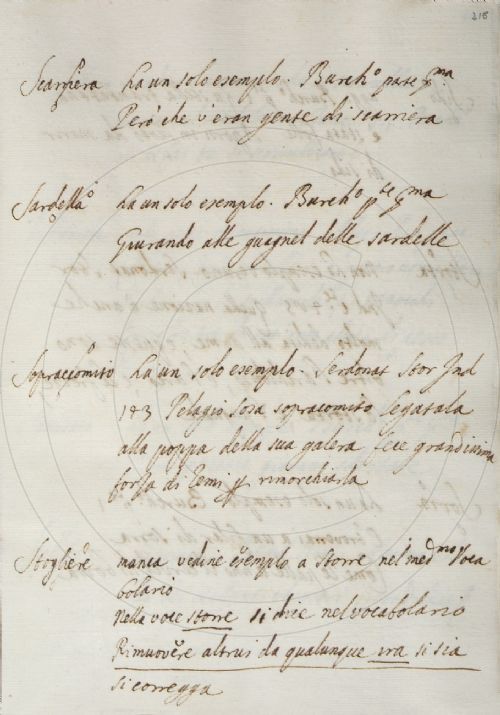 218
Scarriera ha un solo esempio. Burch.o parte p.ma
Però che v'eran gente di scarriera
Sardella ha un solo esempio. Burch.o p.te p.ma
Giurando alle guagnel delle sardelle
Sopraccomito ha un solo esempio. Serdonat Stor Ind
183 Pelagio Sosa sopracomito legatala
alla poppa della sua galera fece grandissima
forza di remi p rimorchiarla
Stogliere manca vedine esempio a storre nel med.mo Voca
bolario
Nella voce storre si dice nel vocabolario
Rimuovere altrui da qualunque sia si sia
si corregga